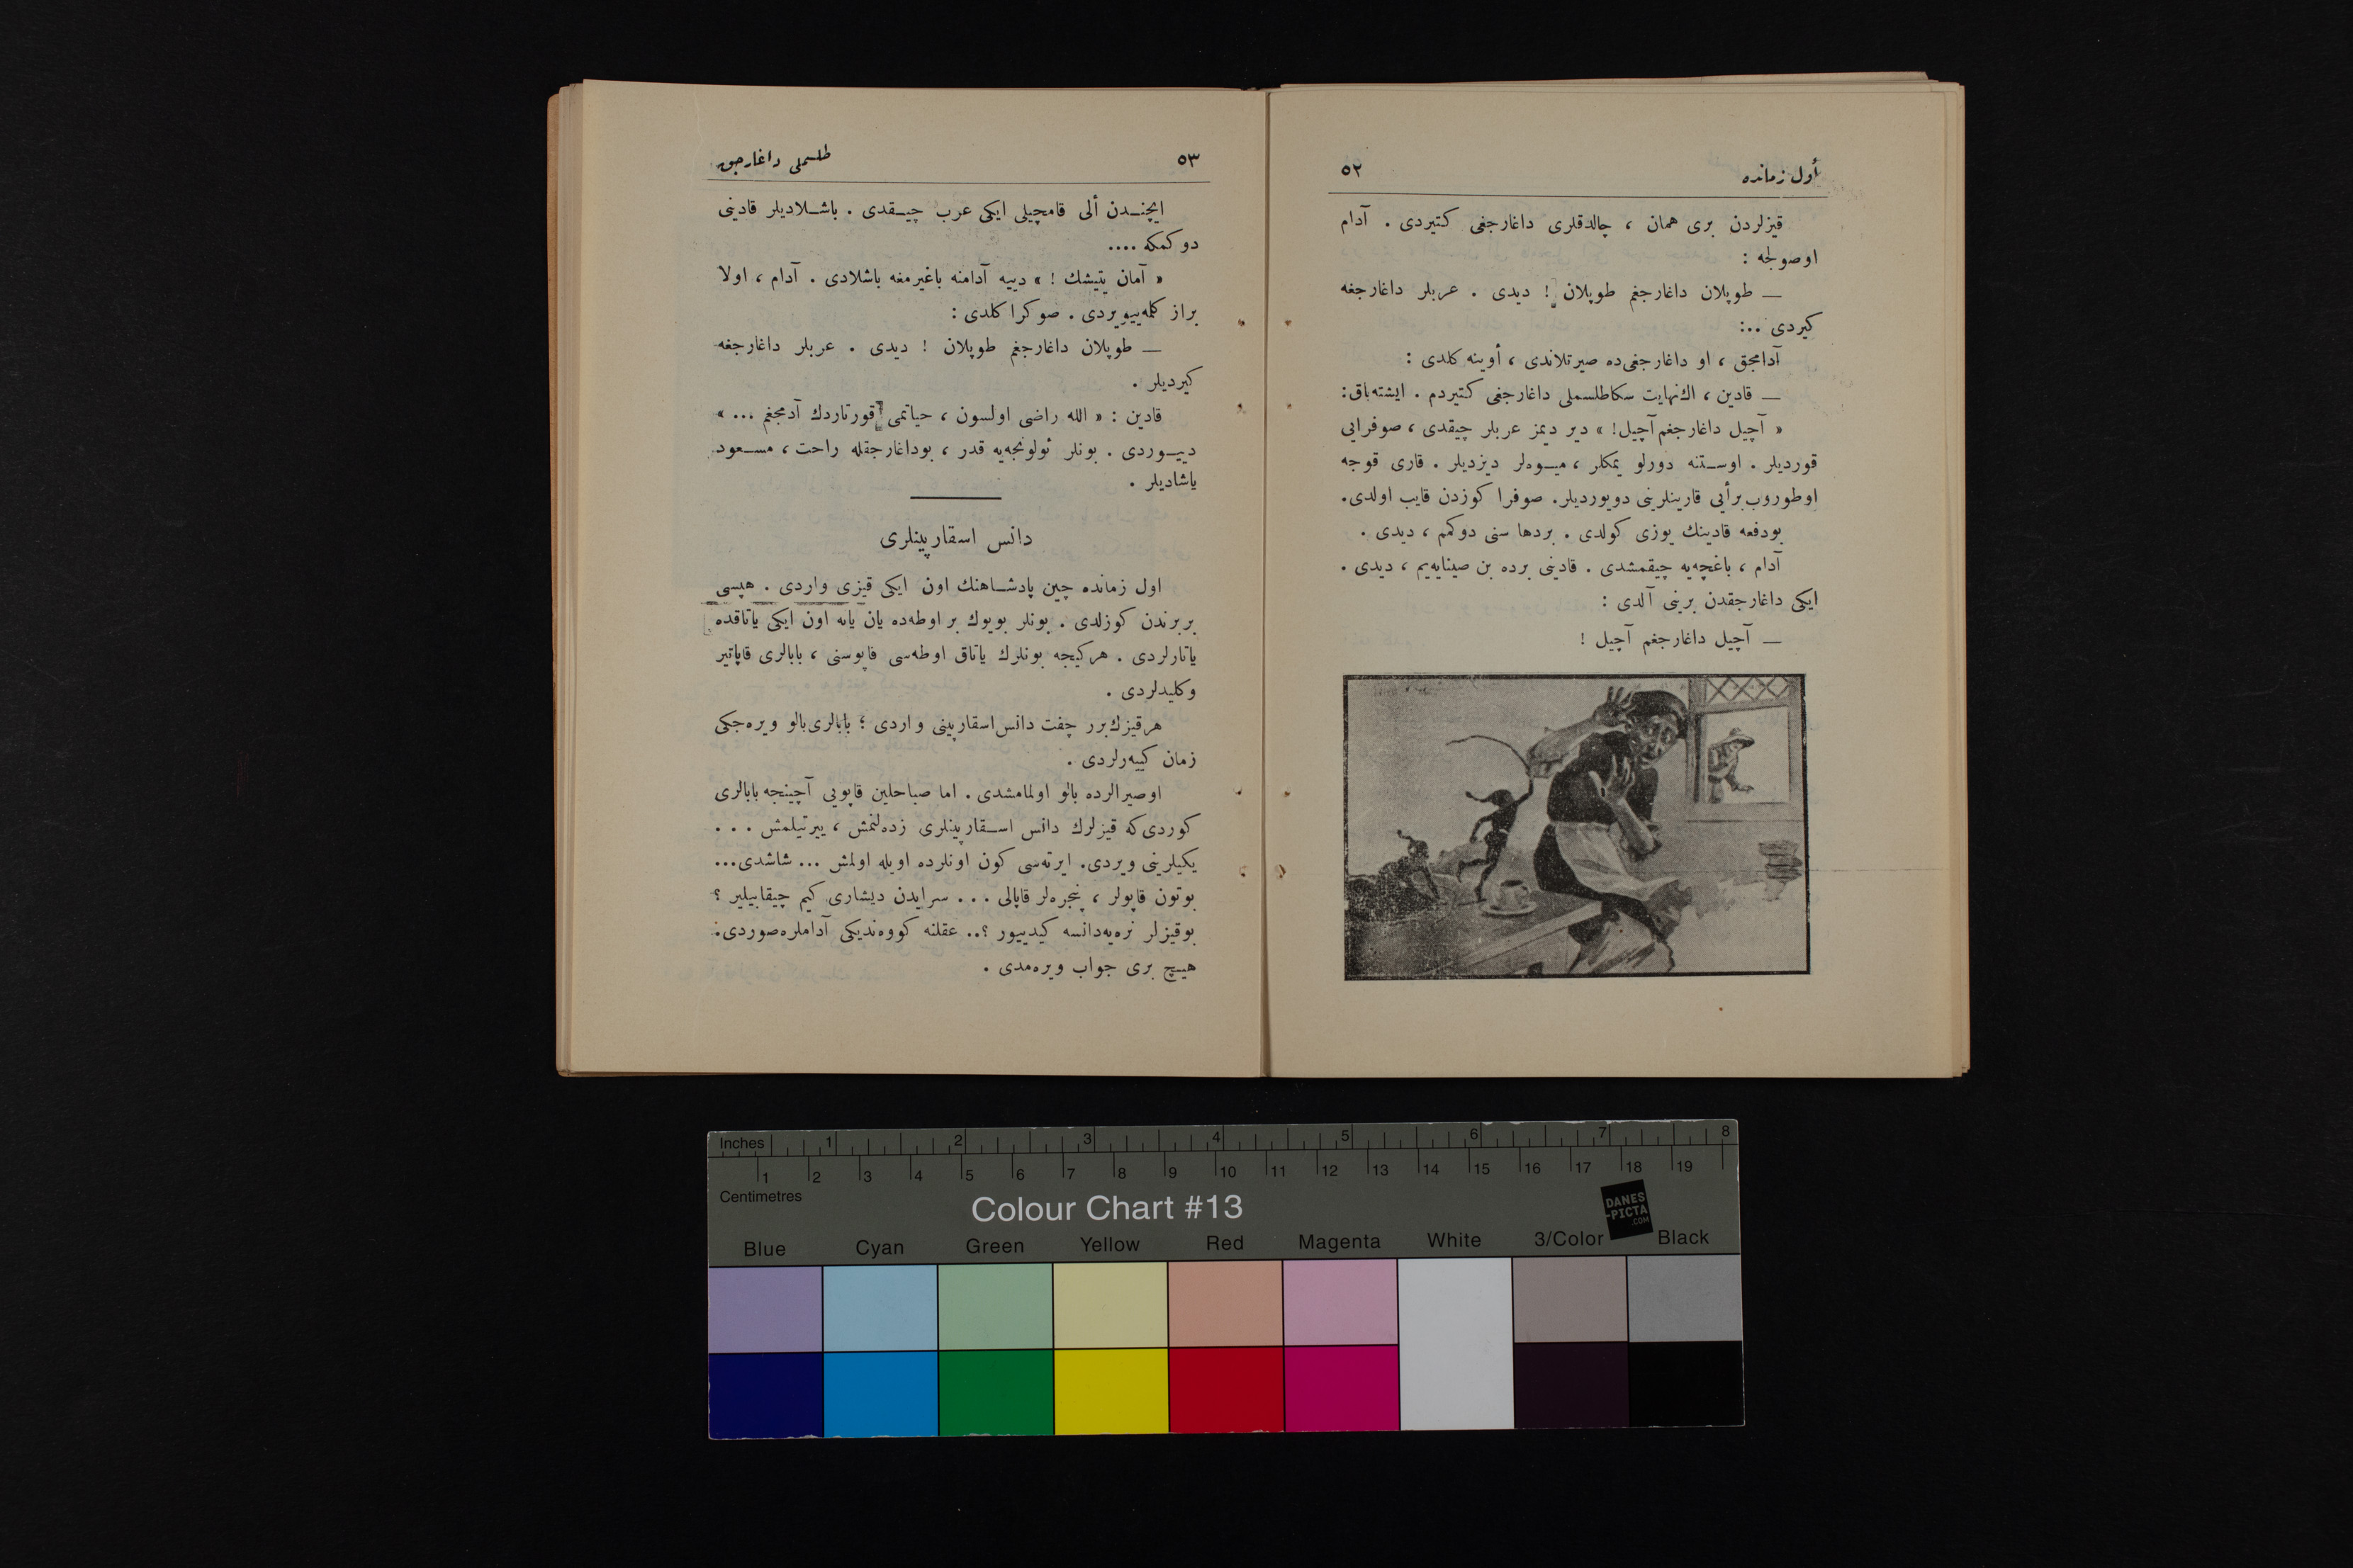 أول زمانده
٥٢
قيزلردن برى همان ، چالدقلرى داغارجغى كتيردى . آدام
اوصولجه :
— طوپلان داغارجغم طوپلان ! ديدى . عربلر داغارجغه
كيردى ..:
آدامجق ، او داغارجغى‌ده صيرتلاندى ، أوينه كلدى :
— قادين ، اك‌نهايت سكاطلسملى داغارجغى كتيردم . ايشته‌باق:
« آچيل داغارجغم آچيل! » دير ديمز عربلر چيقدى ، صوفرايى
قورديلر . اوستنه دورلو يمكلر ، ميوه‌لر ديزديلر . قارى قوجه
اوطوروب‌برأيى قارينلرينى دويورديلر. صوفرا كوزدن قايب اولدى.
بودفعه قادينك يوزى كولدى . بردها سنى دوكمم ، ديدى .
آدام ، باغچه‌يه چيقمشدى . قادينى برده بن صينايه‌يم ، ديدى .
ايكى داغارجقدن برينى آلدى :
— آچيل داغارجغم آچيل !
٥٣
طلسملى داغارجق
ايچندن ألى قامچيلى ايكى عرب چيقدى . باشلاديلر قادينى
دوكمكه ....
« آمان يتيشك ! » دييه آدامنه باغيرمغه باشلادى . آدام ، اولا
براز كلمه‌ييويردى . صوكرا كلدى :
— طوپلان داغارجغم طوپلان ! ديدى . عربلر داغارجغه
كيرديلر .
قادين : « الله راضى اولسون ، حياتمى قورتاردك آدمجغم ... »
دييوردى . بونلر ئولونجه‌يه قدر ، بوداغارجقله راحت ، مسعود
ياشاديلر .
دانس اسقارپينلرى
اول زمانده چين پادشاهنك اون ايكى قيزى واردى . هپسى
بربرندن كوزلدى . بونلر بويوك بر اوطه‌ده يان يانه اون ايكى ياتاقده
ياتارلردى . هركيجه بونلرك ياتاق اوطه‌سى قاپوسنى ، بابالرى قاپاتير
وكليدلردى .
هرقيزك‌برر چفت دانس‌اسقارپينى واردى ؛ بابالرى‌بالو ويره‌جكى
زمان كييه‌رلردى .
اوصيرالرده بالو اولمامشدى . اما صباحلين قاپويى آچينجه بابالرى
كوردى‌كه قيزلرك دانس اسقارپينلرى زده‌لنمش ، ييرتيلمش ...
يكيلرينى ويردى. ايرته‌سى كون اونلرده اويله اولمش ... شاشدى...
بوتون قاپولر ، پنجره‌لر قاپالى ... سرايدن ديشارى كيم چيقابيلير ؟
بوقيزلر نره‌يه‌دانسه كيدييور ؟.. عقلنه كووه‌نديكى آداملره‌صوردى:
هيچ برى جواب ويره‌مدى .
Inches 1 2 3 4 5 6 7 8
1 2 3 4 5 6 7 8 9 10 11 12 13 14 15 16 17 18 19
Centimetres
Colour Chart #13
DANES
-PICTA
.COM
Blue Cyan Green Yellow Red Magenta White 3/Color Black